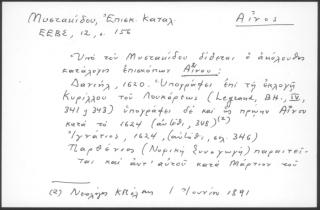 Μυστακίδου, Ἐπισκ. Καταλ. Αἶνος
ΕΕΒΣ, 12, σ. 156
Ὑπὸ τοῦ Μυστακίδου δίδεται ὁ ἀκόλουθος
κατάλογος ἐπισκόπων Αἴνου:
Δανιήλ, 1620. Ὑπογράφει ἐπὶ τῇ ἐκλογῇ
Κυρίλλου τοῦ Λουκάρεως (Legrand, B.H., IV,
341 & 343) ὑπογράφει δὲ καὶ ὡς πρώην Αἴνου
κατὰ τὸ 1624 (αὐτόθι, 348)(2)
Ἰγνάτιος, 1624, (αὐτόθι, σελ. 346)
Παρθένιος (Νομικὴ Συναγωγή) παραιτεῖ-
ται καὶ ἀντ' αὐτοῦ κατὰ Μάρτιον τοῦ
(2) Νεολόγος 1 Ἰουνίου 1891